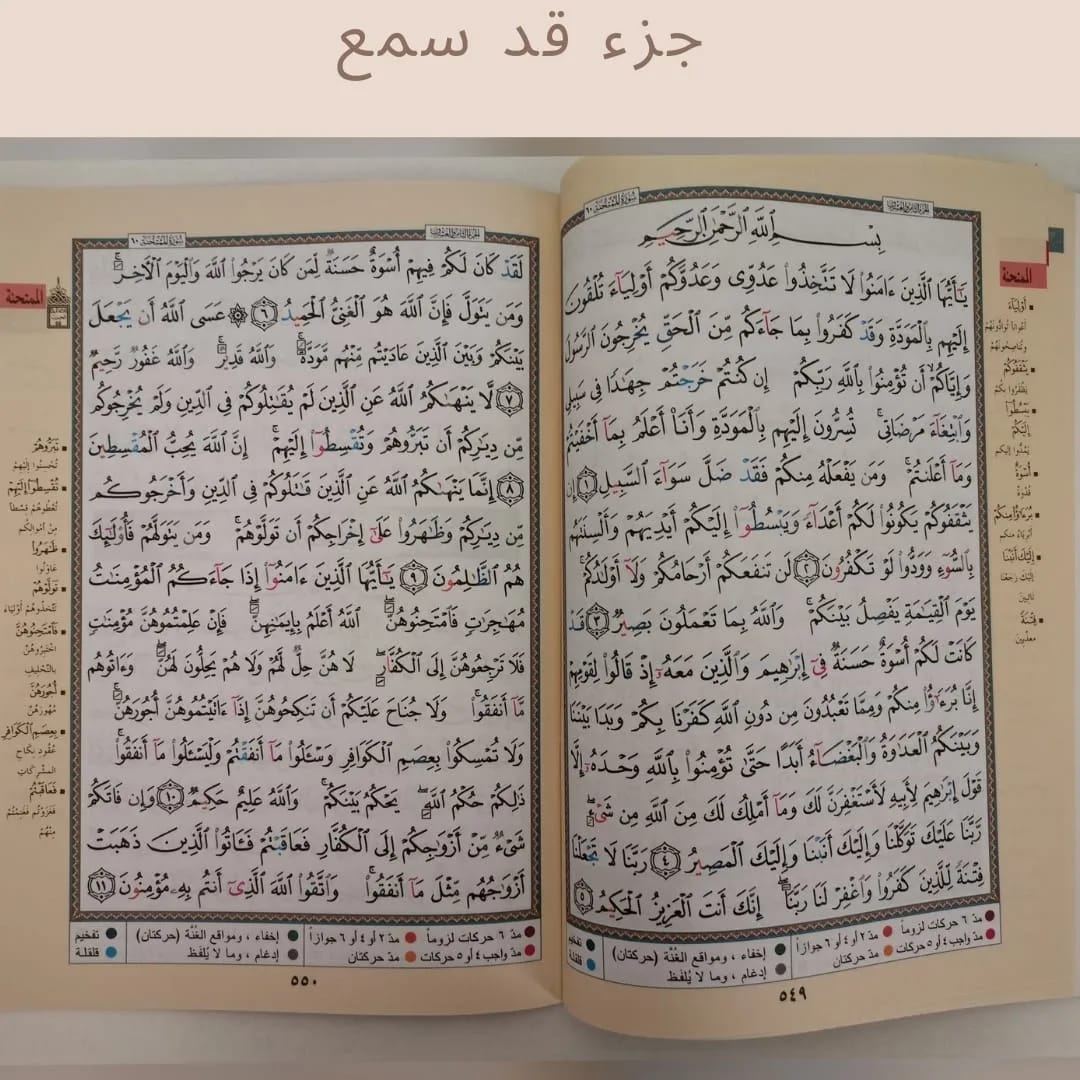 جزء قد سمع
سورة الممتحنة ٦٠
الجزء الثامن والعشرون
بِسْمِ ٱللَّهِ ٱلرَّحْمَٰنِ ٱلرَّحِيمِ
يَٰٓأَيُّهَا ٱلَّذِينَ ءَامَنُوا۟ لَا تَتَّخِذُوا۟ عَدُوِّى وَعَدُوَّكُمْ أَوْلِيَآءَ تُلْقُونَ
إِلَيْهِم بِٱلْمَوَدَّةِ وَقَدْ كَفَرُوا۟ بِمَا جَآءَكُم مِّنَ ٱلْحَقِّ يُخْرِجُونَ ٱلرَّسُولَ
وَإِيَّاكُمْ أَن تُؤْمِنُوا۟ بِٱللَّهِ رَبِّكُمْ إِن كُنتُمْ خَرَجْتُمْ جِهَٰدًا فِى سَبِيلِى
وَٱبْتِغَآءَ مَرْضَاتِى تُسِرُّونَ إِلَيْهِم بِٱلْمَوَدَّةِ وَأَنَا۠ أَعْلَمُ بِمَآ أَخْفَيْتُمْ
وَمَآ أَعْلَنتُمْ وَمَن يَفْعَلْهُ مِنكُمْ فَقَدْ ضَلَّ سَوَآءَ ٱلسَّبِيلِ ١ إِن
يَثْقَفُوكُمْ يَكُونُوا۟ لَكُمْ أَعْدَآءً وَيَبْسُطُوٓا۟ إِلَيْكُمْ أَيْدِيَهُمْ وَأَلْسِنَتَهُم
بِٱلسُّوٓءِ وَوَدُّوا۟ لَوْ تَكْفُرُونَ ٢ لَن تَنفَعَكُمْ أَرْحَامُكُمْ وَلَآ أَوْلَٰدُكُمْ
يَوْمَ ٱلْقِيَٰمَةِ يَفْصِلُ بَيْنَكُمْ وَٱللَّهُ بِمَا تَعْمَلُونَ بَصِيرٌ ٣ قَدْ
كَانَتْ لَكُمْ أُسْوَةٌ حَسَنَةٌ فِىٓ إِبْرَٰهِيمَ وَٱلَّذِينَ مَعَهُۥٓ إِذْ قَالُوا۟ لِقَوْمِهِمْ
إِنَّا بُرَءَٰٓؤُا۟ مِنكُمْ وَمِمَّا تَعْبُدُونَ مِن دُونِ ٱللَّهِ كَفَرْنَا بِكُمْ وَبَدَا بَيْنَنَا
وَبَيْنَكُمُ ٱلْعَدَٰوَةُ وَٱلْبَغْضَآءُ أَبَدًا حَتَّىٰ تُؤْمِنُوا۟ بِٱللَّهِ وَحْدَهُۥٓ إِلَّا
قَوْلَ إِبْرَٰهِيمَ لِأَبِيهِ لَأَسْتَغْفِرَنَّ لَكَ وَمَآ أَمْلِكُ لَكَ مِنَ ٱللَّهِ مِن شَىْءٍ
رَّبَّنَا عَلَيْكَ تَوَكَّلْنَا وَإِلَيْكَ أَنَبْنَا وَإِلَيْكَ ٱلْمَصِيرُ ٤ رَبَّنَا لَا تَجْعَلْنَا
فِتْنَةً لِّلَّذِينَ كَفَرُوا۟ وَٱغْفِرْ لَنَا رَبَّنَآ إِنَّكَ أَنتَ ٱلْعَزِيزُ ٱلْحَكِيمُ ٥
الممتحنة
أَوْلِيَآءَ
أعوانا توادونهم
وتناصحونهم
يَثْقَفُوكُمْ
يظفروا بكم
يَبْسُطُوٓا۟
إِلَيْكُمْ
يمدوا إليكم
أُسْوَةٌ
قدوة
بُرَءَٰٓؤُا۟ مِنكُمْ
أبرياء منكم
إِلَيْكَ أَنَبْنَا
إليك رجعنا
تائبين
فِتْنَةً
معذبين
مدّ ٦ حركات لزوماً
مدّ ٢ أو ٤ أو ٦ جوازاً
إخفاء ، ومواقع الغُنَّة (حركتان)
تفخيم
مدّ واجب ٤ أو ٥ حركات
مدّ حركتان
إدغام ، وما لا يُلفَظ
قلقلة
٥٤٩
سورة الممتحنة ٦٠
الجزء الثامن والعشرون
لَقَدْ كَانَ لَكُمْ فِيهِمْ أُسْوَةٌ حَسَنَةٌ لِّمَن كَانَ يَرْجُوا۟ ٱللَّهَ وَٱلْيَوْمَ ٱلْءَاخِرَ
وَمَن يَتَوَلَّ فَإِنَّ ٱللَّهَ هُوَ ٱلْغَنِىُّ ٱلْحَمِيدُ ٦ ۞ عَسَى ٱللَّهُ أَن يَجْعَلَ
بَيْنَكُمْ وَبَيْنَ ٱلَّذِينَ عَادَيْتُم مِّنْهُم مَّوَدَّةً وَٱللَّهُ قَدِيرٌ وَٱللَّهُ غَفُورٌ رَّحِيمٌ
٧ لَّا يَنْهَىٰكُمُ ٱللَّهُ عَنِ ٱلَّذِينَ لَمْ يُقَٰتِلُوكُمْ فِى ٱلدِّينِ وَلَمْ يُخْرِجُوكُم
مِّن دِيَٰرِكُمْ أَن تَبَرُّوهُمْ وَتُقْسِطُوٓا۟ إِلَيْهِمْ إِنَّ ٱللَّهَ يُحِبُّ ٱلْمُقْسِطِينَ
٨ إِنَّمَا يَنْهَىٰكُمُ ٱللَّهُ عَنِ ٱلَّذِينَ قَٰتَلُوكُمْ فِى ٱلدِّينِ وَأَخْرَجُوكُم
مِّن دِيَٰرِكُمْ وَظَٰهَرُوا۟ عَلَىٰٓ إِخْرَاجِكُمْ أَن تَوَلَّوْهُمْ وَمَن يَتَوَلَّهُمْ فَأُو۟لَٰٓئِكَ
هُمُ ٱلظَّٰلِمُونَ ٩ يَٰٓأَيُّهَا ٱلَّذِينَ ءَامَنُوٓا۟ إِذَا جَآءَكُمُ ٱلْمُؤْمِنَٰتُ
مُهَٰجِرَٰتٍ فَٱمْتَحِنُوهُنَّ ٱللَّهُ أَعْلَمُ بِإِيمَٰنِهِنَّ فَإِنْ عَلِمْتُمُوهُنَّ مُؤْمِنَٰتٍ
فَلَا تَرْجِعُوهُنَّ إِلَى ٱلْكُفَّارِ لَا هُنَّ حِلٌّ لَّهُمْ وَلَا هُمْ يَحِلُّونَ لَهُنَّ وَءَاتُوهُم
مَّآ أَنفَقُوا۟ وَلَا جُنَاحَ عَلَيْكُمْ أَن تَنكِحُوهُنَّ إِذَآ ءَاتَيْتُمُوهُنَّ أُجُورَهُنَّ
وَلَا تُمْسِكُوا۟ بِعِصَمِ ٱلْكَوَافِرِ وَسْـَٔلُوا۟ مَآ أَنفَقْتُمْ وَلْيَسْـَٔلُوا۟ مَآ أَنفَقُوا۟
ذَٰلِكُمْ حُكْمُ ٱللَّهِ يَحْكُمُ بَيْنَكُمْ وَٱللَّهُ عَلِيمٌ حَكِيمٌ ١٠ وَإِن فَاتَكُمْ
شَىْءٌ مِّنْ أَزْوَٰجِكُمْ إِلَى ٱلْكُفَّارِ فَعَاقَبْتُمْ فَـَٔاتُوا۟ ٱلَّذِينَ ذَهَبَتْ
أَزْوَٰجُهُم مِّثْلَ مَآ أَنفَقُوا۟ وَٱتَّقُوا۟ ٱللَّهَ ٱلَّذِىٓ أَنتُم بِهِۦ مُؤْمِنُونَ ١١
الممتحنة
تَبَرُّوهُمْ
تحسنوا إليهم
تُقْسِطُوٓا۟ إِلَيْهِمْ
تعطوهم قسطا
من أموالكم
ظَٰهَرُوا۟
عاونوا
تَوَلَّوْهُمْ
تتخذوهم أولياء
فَٱمْتَحِنُوهُنَّ
اختبروهن
بالتحليف
أُجُورَهُنَّ
مهورهن
بِعِصَمِ ٱلْكَوَافِرِ
عقود نكاح
المشركات
فَعَاقَبْتُمْ
فغزوتم فغنمتم
منهم
مدّ ٦ حركات لزوماً
مدّ ٢ أو ٤ أو ٦ جوازاً
إخفاء ، ومواقع الغُنَّة (حركتان)
تفخيم
مدّ واجب ٤ أو ٥ حركات
مدّ حركتان
إدغام ، وما لا يُلفَظ
قلقلة
٥٥٠